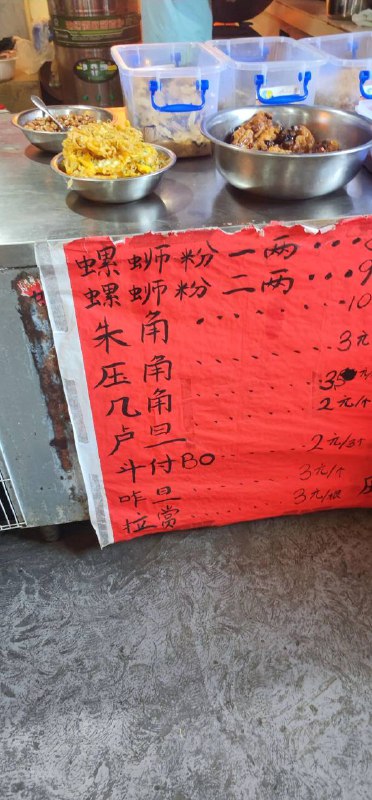 螺蛳粉一两...8
螺蛳粉二两...9
朱角......10
压角......3元
几角......35元/个
卢旦......2元/个
斗付BO......2元/3个
咋旦......3元/个
拉赏......3元/根